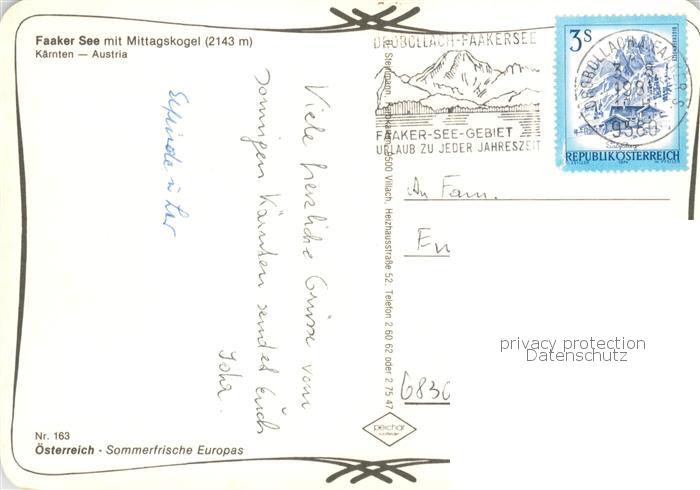 Faaker See mit Mittagskogel (2143 m)
Kärnten — Austria
Viele herzliche Grüsse vom
sonnigen Kärnten sendet Euch
Nr. 163
Österreich · Sommerfrische Europas
Stehrmann, 9500 Villach, Herzhausstraße 52, Telefon 2 60 62 oder 2 75 47
DROBOLLACH-FAAKERSEE
FAAKER-SEE-GEBIET
URLAUB ZU JEDER JAHRESZEIT
3 S
REPUBLIK ÖSTERREICH
9580
An Fam.
privacy protection
Datenschutz